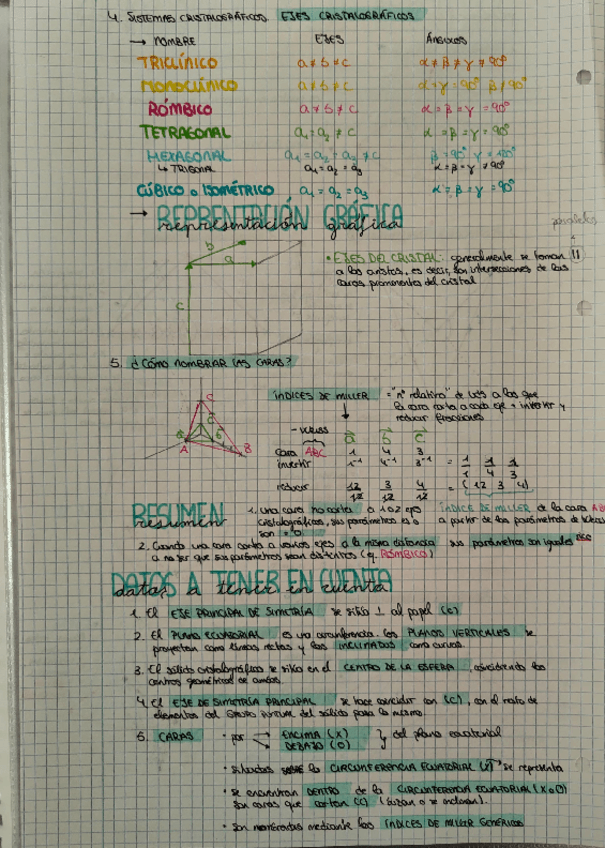 4. SISTEMAS CRISTALOGRÁFICOS. EJES CRISTALOGRÁFICOS
→ NOMBRE EJES ÁNGULOS
TRICLÍNICO a ≠ b ≠ c α ≠ β ≠ γ ≠ 90°
MONOCLÍNICO a ≠ b ≠ c α = γ = 90° β ≠ 90°
RÓMBICO a ≠ b ≠ c α = β = γ = 90°
TETRAGONAL a₁ = a₂ ≠ c α = β = γ = 90°
HEXAGONAL a₁ = a₂ = a₃ ≠ c β = 90° γ = 120°
↳ TRIGONAL a₁ = a₂ = a₃ α = β = γ ≠ 90°
CÚBICO o ISOMÉTRICO a₁ = a₂ = a₃ α = β = γ = 90°
→ representación gráfica
paralelos
b
a
c
• EJES DEL CRISTAL: generalmente se toman ||
a las aristas, es decir, son intersecciones de las
caras prominentes del cristal
5. ¿CÓMO NOMBRAR LAS CARAS?
ÍNDICES DE MILLER = "nº relativo" de veces a las que
la cara corta a cada eje + invertir y
reducir fracciones
C
A
B
a b c
cara ABC 1 4 3
invertir 1⁻¹ 4⁻¹ 3⁻¹ = 1/1 1/4 1/3
reducir 12/12 3/12 4/12 = (12 3 4)
RESUMEN
resumen
1. una cara no corta a 1 o 2 ejes
cristalográficos, sus parámetros es o
son = 0
ÍNDICE DE MILLER de la cara AB
a partir de los parámetros de
2. Cuando una cara corta a varios ejes a la misma distancia sus parámetros son iguales
a no ser que sus parámetros sean distintos (ej. RÓMBICO)
DATOS A TENER EN CUENTA
datos a tener en cuenta
1. El EJE PRINCIPAL DE SIMETRÍA se sitúa ⊥ al papel (c)
2. El PLANO ECUATORIAL es una circunferencia. Los PLANOS VERTICALES se
proyectan como líneas rectas y los INCLINADOS como curvas.
3. El sólido cristalográfico se sitúa en el CENTRO DE LA ESFERA, coincidiendo los
centros geométricos de ambos.
4. El EJE DE SIMETRÍA PRINCIPAL se hace coincidir con (c), con el resto de
elementos del GRUPO PUNTUAL del sólido pasa lo mismo.
5. CARAS • por → ENCIMA (X)
→ DEBAJO (O) } del plano ecuatorial
• situadas la CIRCUNFERENCIA ECUATORIAL se representa
• se encuentran DENTRO de la CIRCUNFERENCIA ECUATORIAL (X o O)
son caras que cortan (c)
• Son nombradas mediante los ÍNDICES DE MILLER GENÉRICOS